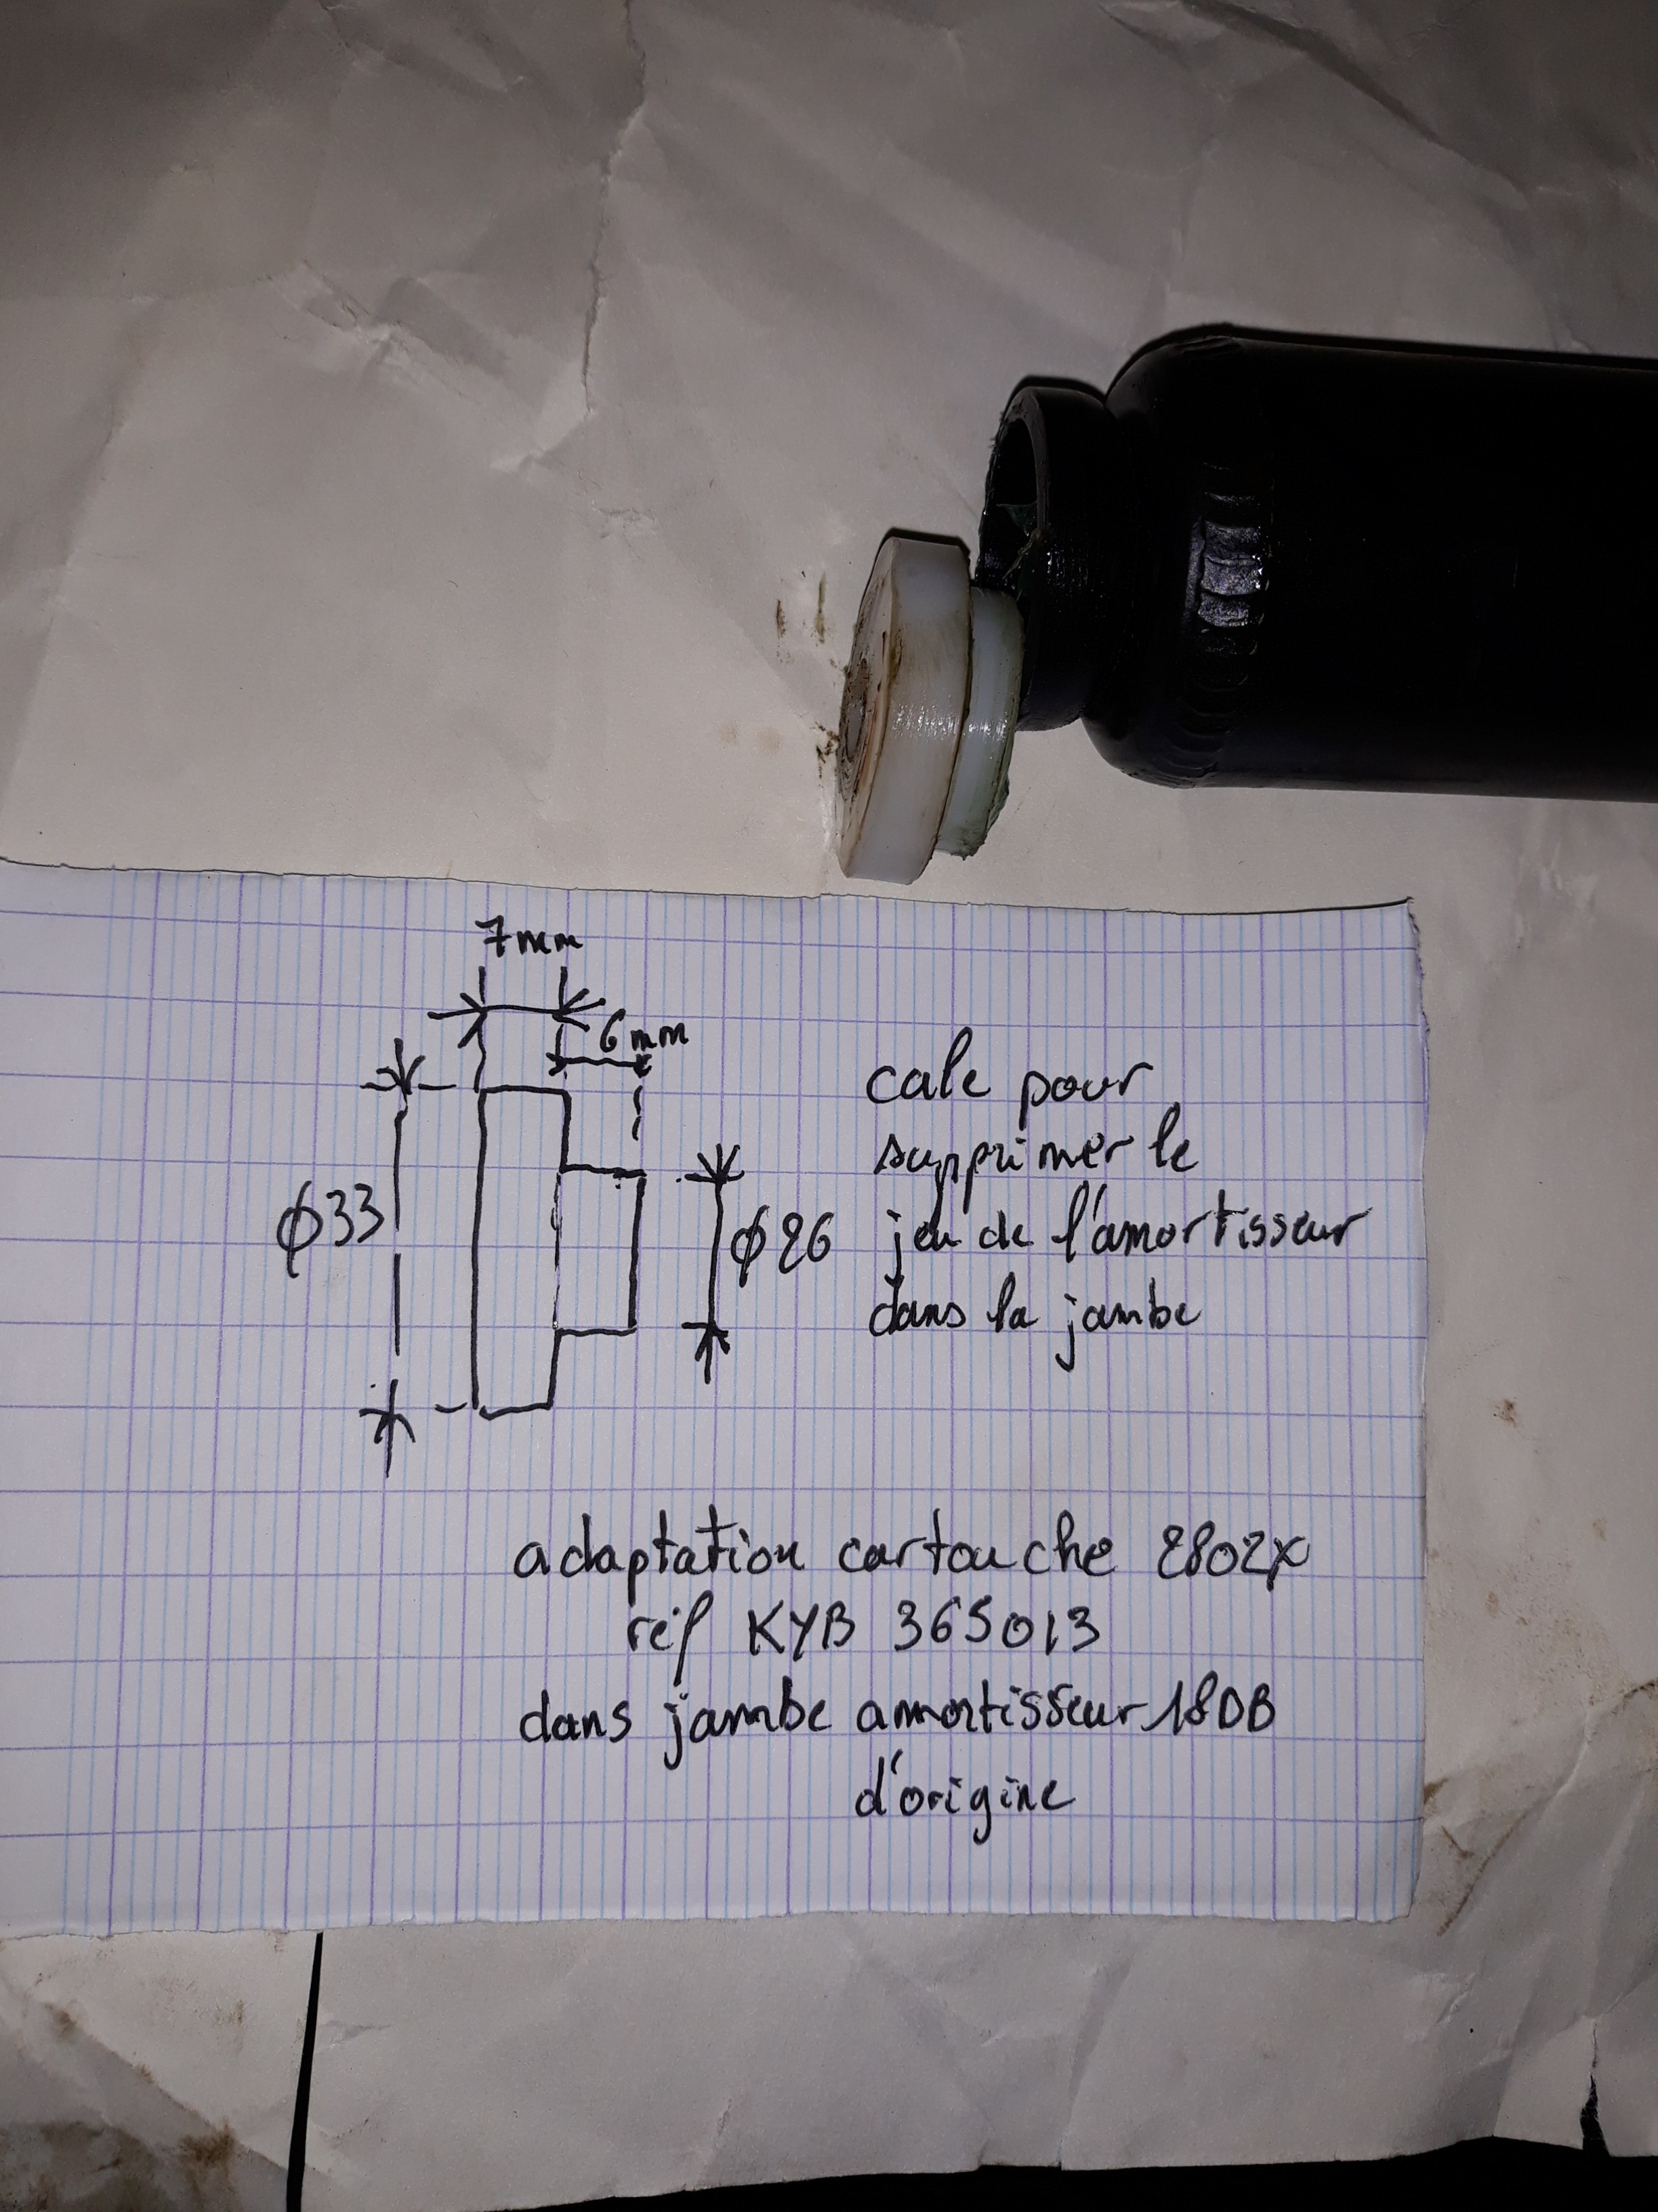 7mm
6mm
ϕ33
ϕ26
cale pour
supprimer le
jeu de l'amortisseur
dans la jambe
adaptation cartouche 280zx
réf KYB 365013
dans jambe amortisseur 180B
d'origine